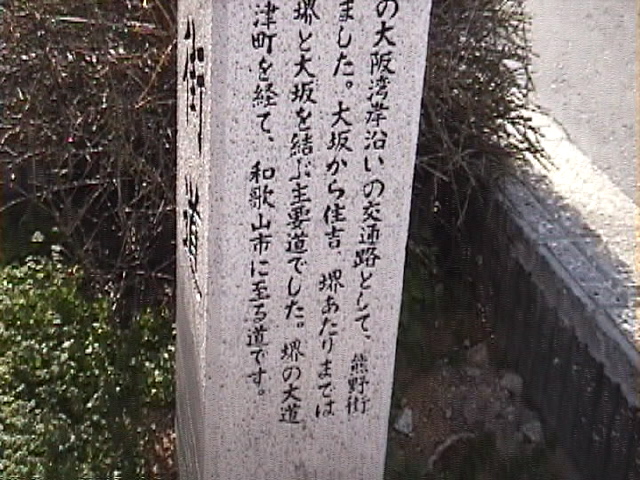 の大阪湾岸沿いの交通路として、熊野街
ました。大坂から住吉、堺あたりまでは
堺と大坂を結ぶ主要道でした。堺の大道
津町を経て、和歌山市に至る道です。
街道